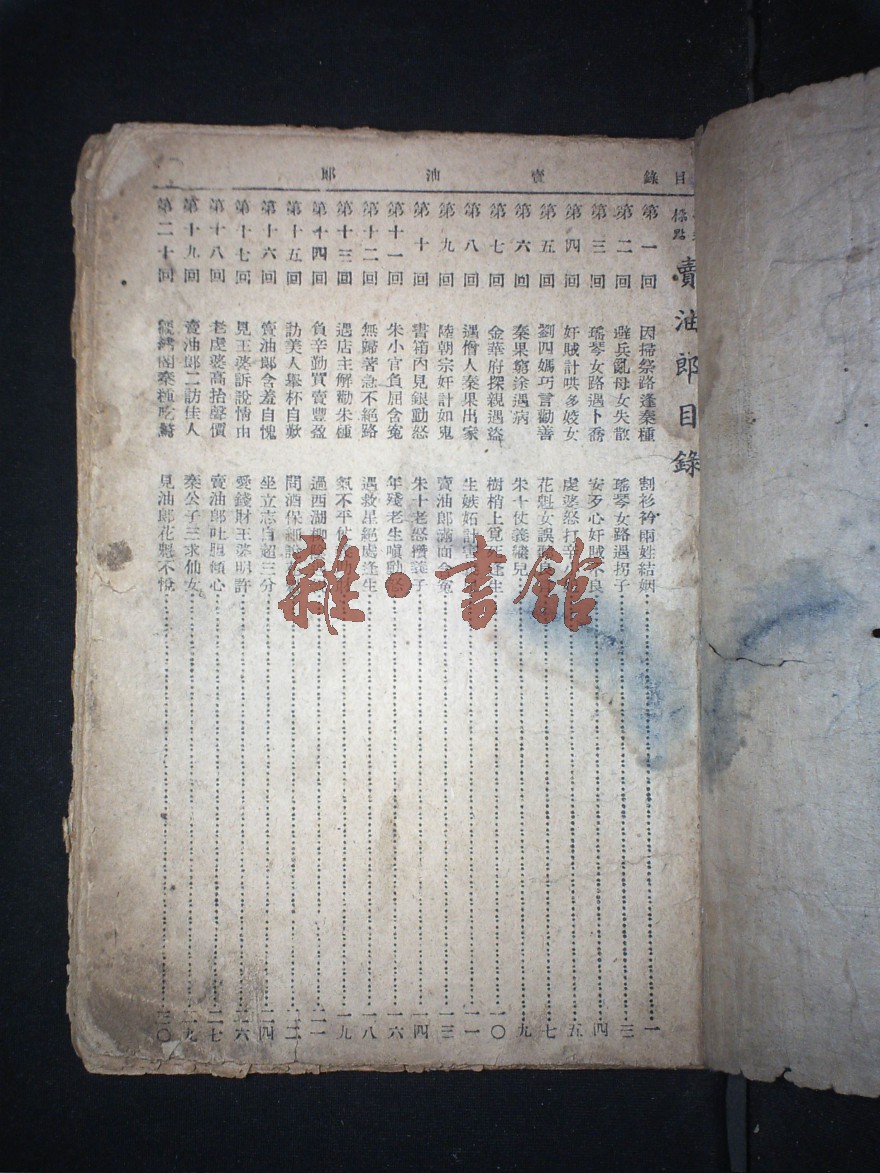 目錄 賣油郎
標點 賣油郎目錄
第一回 因掃祭路逢秦種 割衫衿兩姓結姻 一
第二回 避兵亂母女失散 瑤琴女路遇拐子 三
第三回 瑤琴女路遇卜喬 安歹心奸賊不良 四
第四回 奸賊計哄多姣女 虔婆怒打辛 五
第五回 劉四媽巧言勸善 花魁女誤 七
第六回 秦果窮途遇病 朱十仗義繼兒 九
第七回 金華府探親遇盜 樹梢上覓死逢生 一〇
第八回 遇僧人秦果出家 生嫉妬計害 一一
第九回 陸朝宗奸計如鬼 賣油郎滿面含冤 一三
第十回 書箱內見銀動怒 朱十老怒攆義子 一四
第十一回 朱小官負屈含冤 年殘老生嗔動怒 一六
第十二回 無歸著急不絕路 遇救星絕處逢生 一八
第十三回 遇店主解勸朱種 氣不平仗 一九
第十四回 負辛勤買賣豐盈 過西湖 二一
第十五回 訪美人舉杯自歎 問酒保細說 二二
第十六回 賣油郎含羞自愧 坐立志自超三分 二四
第十七回 見王婆訴說情由 愛錢財王婆明許 二六
第十八回 老虔婆高抬聲價 賣油郎吐胆傾心 二七
第十九回 賣油郎二訪佳人 秦公子三求仙女 二九
第二十回 秦種吃驚 見油郎花魁不悅 三〇
雜·書館